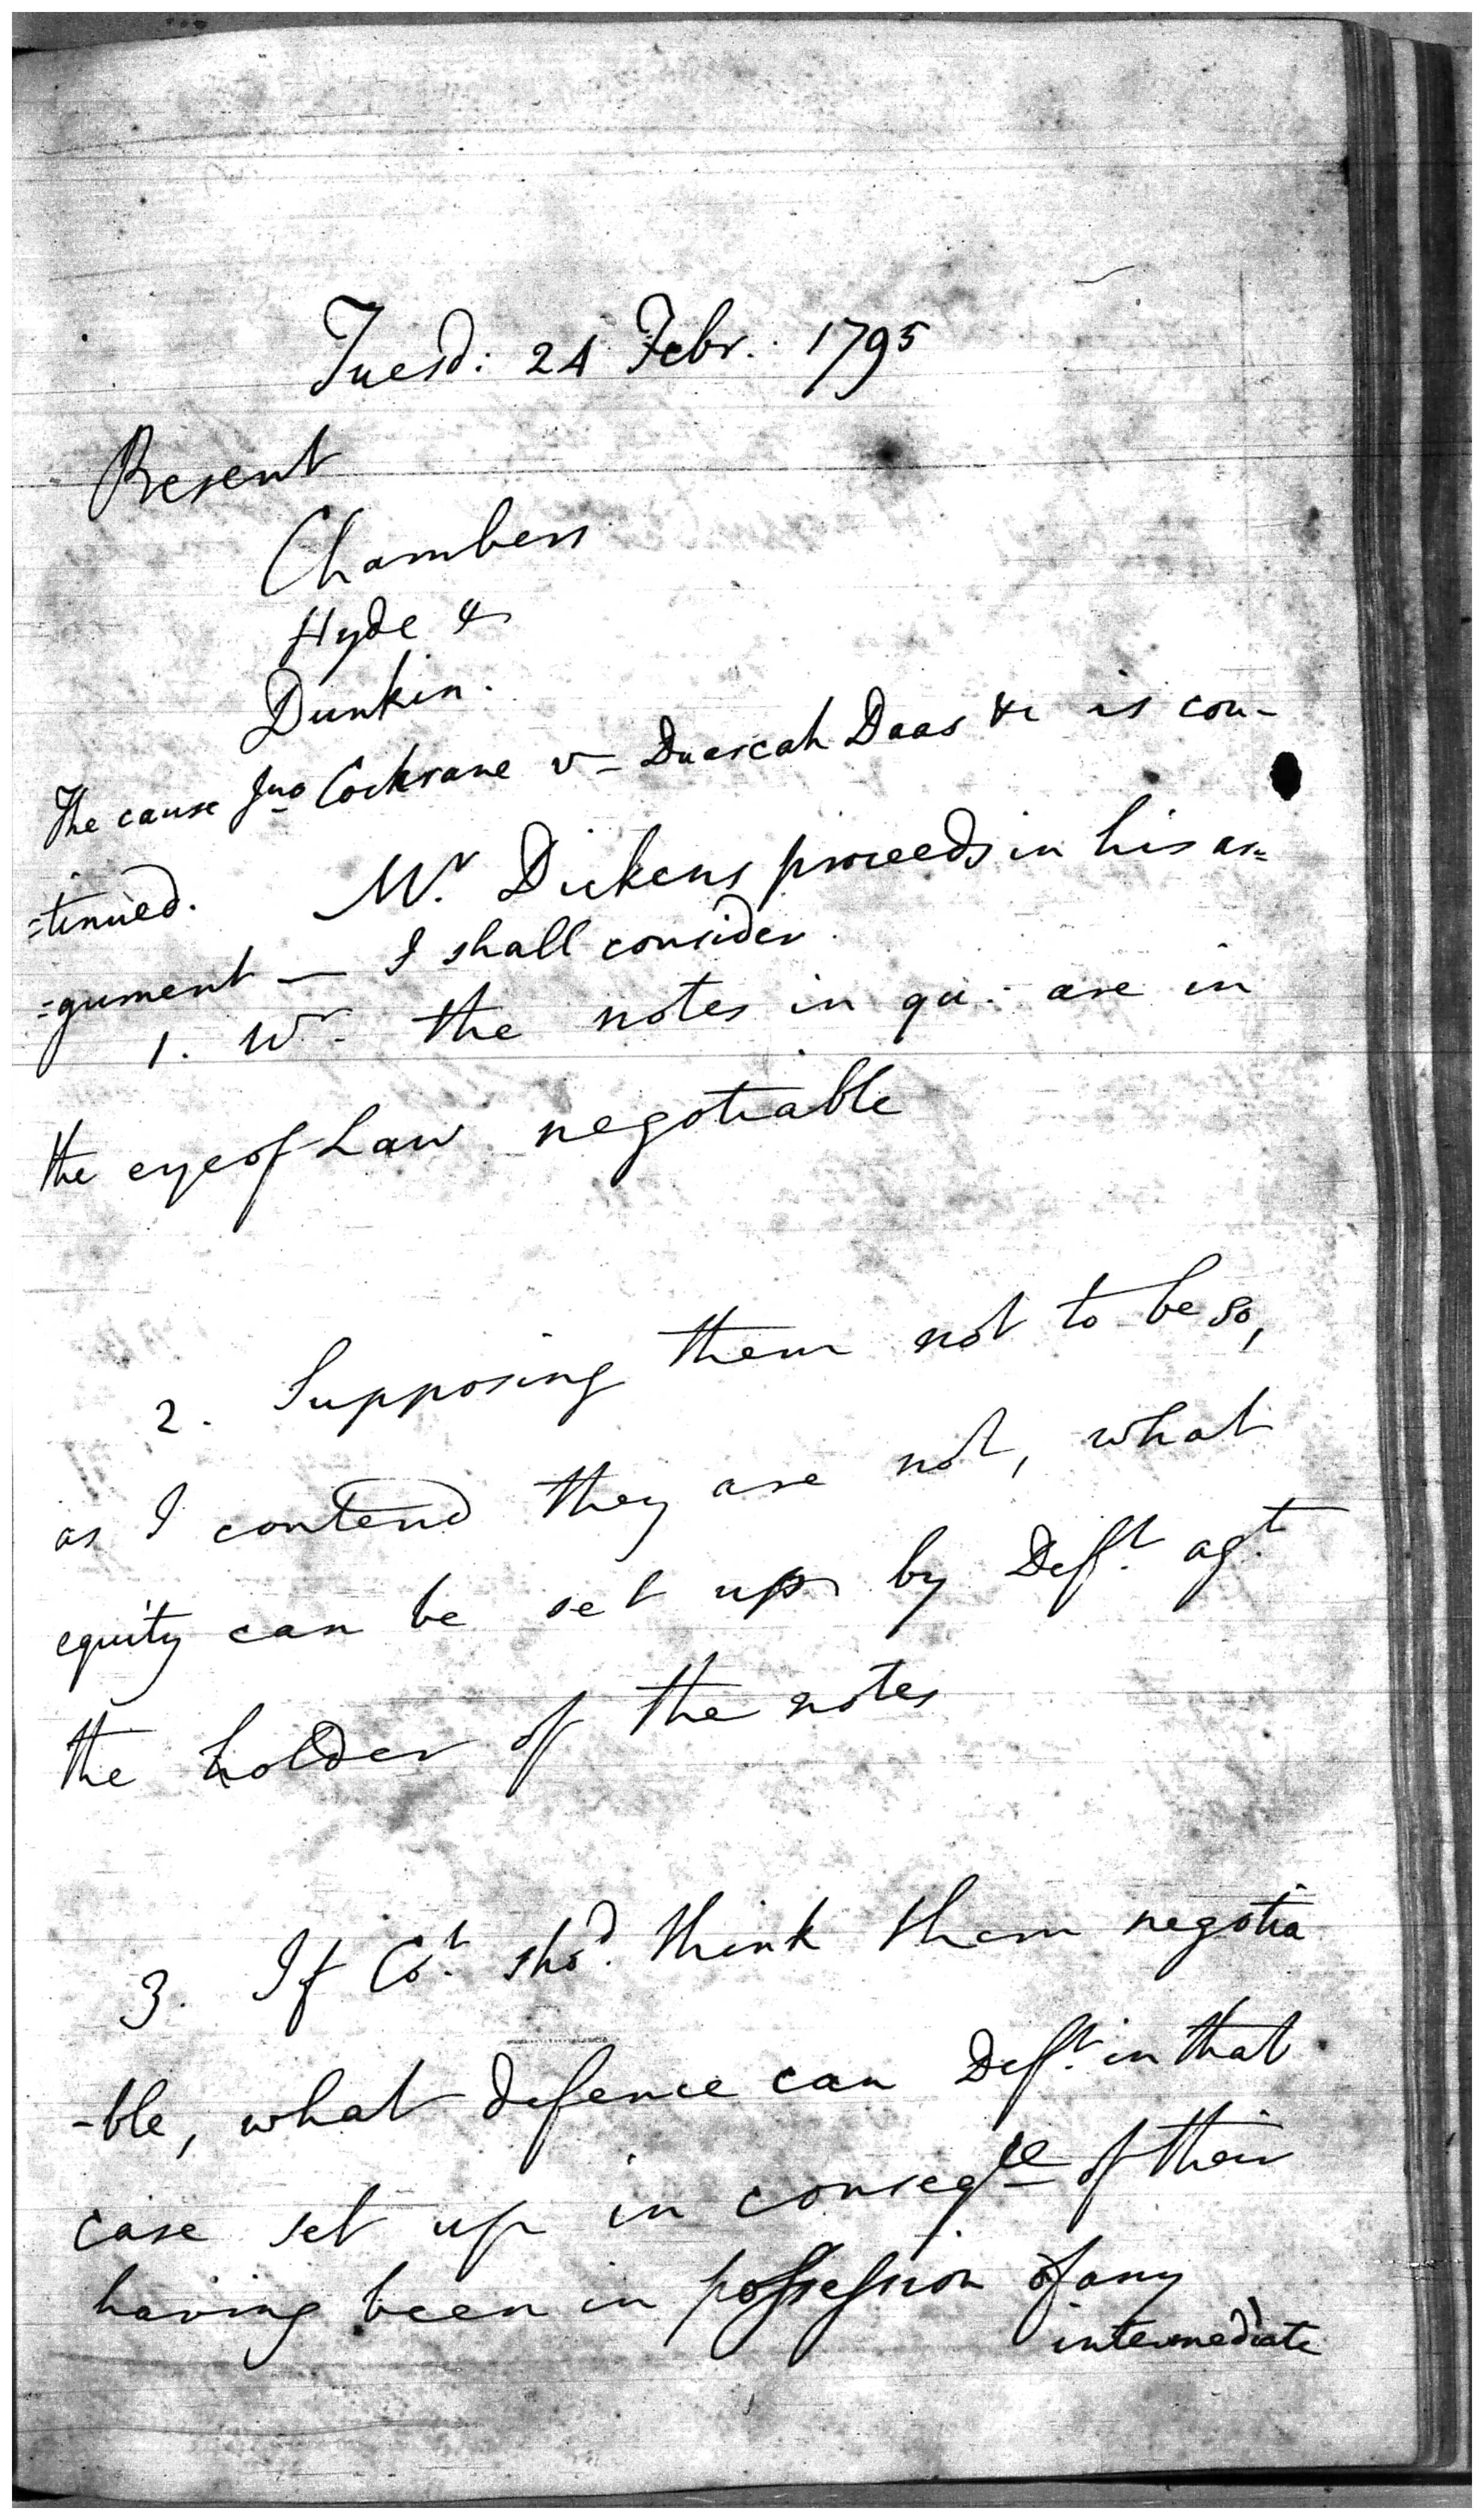 Tuesd: 24 Febr. 1795
Present
Chambers
Hyde &
Dunkin.
The cause Jno Cockrane v– Duarcah Daas &c is con-
=tinued. Mr. Dickens proceeds in his ar=
=gument — I shall consider.
1. Wr. the notes in qu: are in
the eye of Law negotiable
2. Supposing them not to be so,
as I contend they are not, what
equity can be set up by Deft. agt.
the holder of the notes
3. If Cot. shod. think them negotia
-ble, what defence can Deft. in that
case set up in conseqce of their
having been in possession of any
intermediate